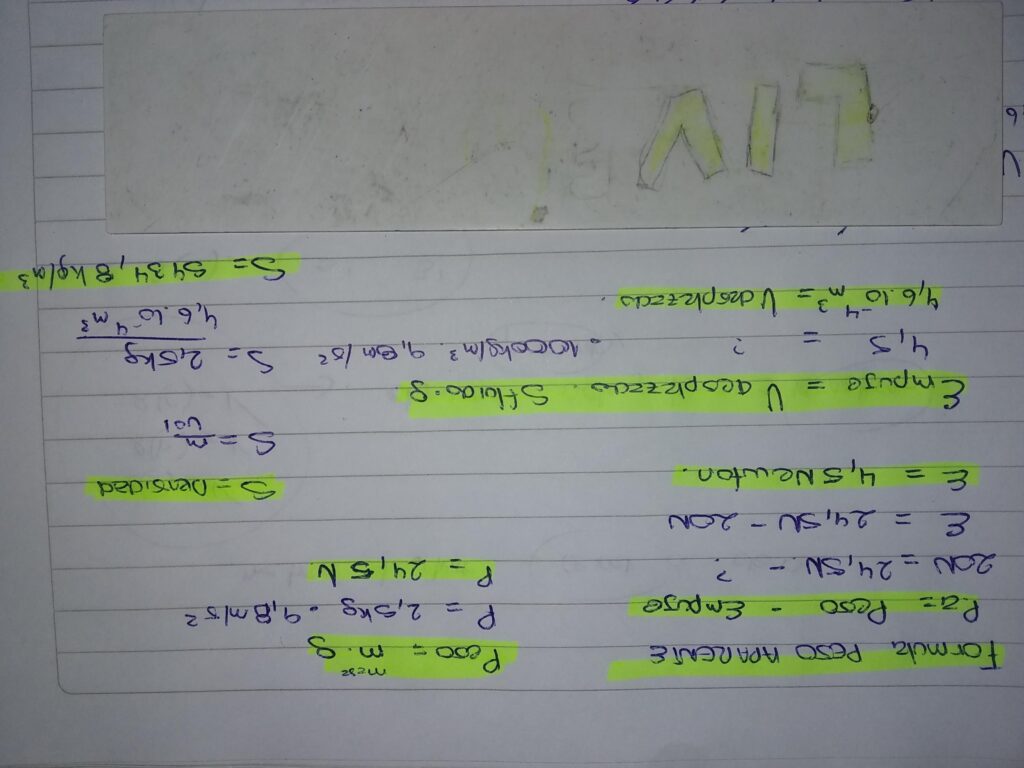 Formula PESO APARENTE
P.a = Peso - Empuje
20N = 24,5N - ?
E = 24,5N - 20N
E = 4,5 Newton.
Empuje = V desplazado . Sfluido.g
4,5 = ? . 1000kg/m³. 9,8m/s²
4,6.10⁻⁴ m³ = V desplazado.
Peso = m . g
masa
P = 2,5kg . 9,8m/s²
P = 24,5 N
S = Densidad
S = m
Vol
S = 2,5kg
4,6.10⁻⁴m³
S = 5434,8 kg/m³
LIV